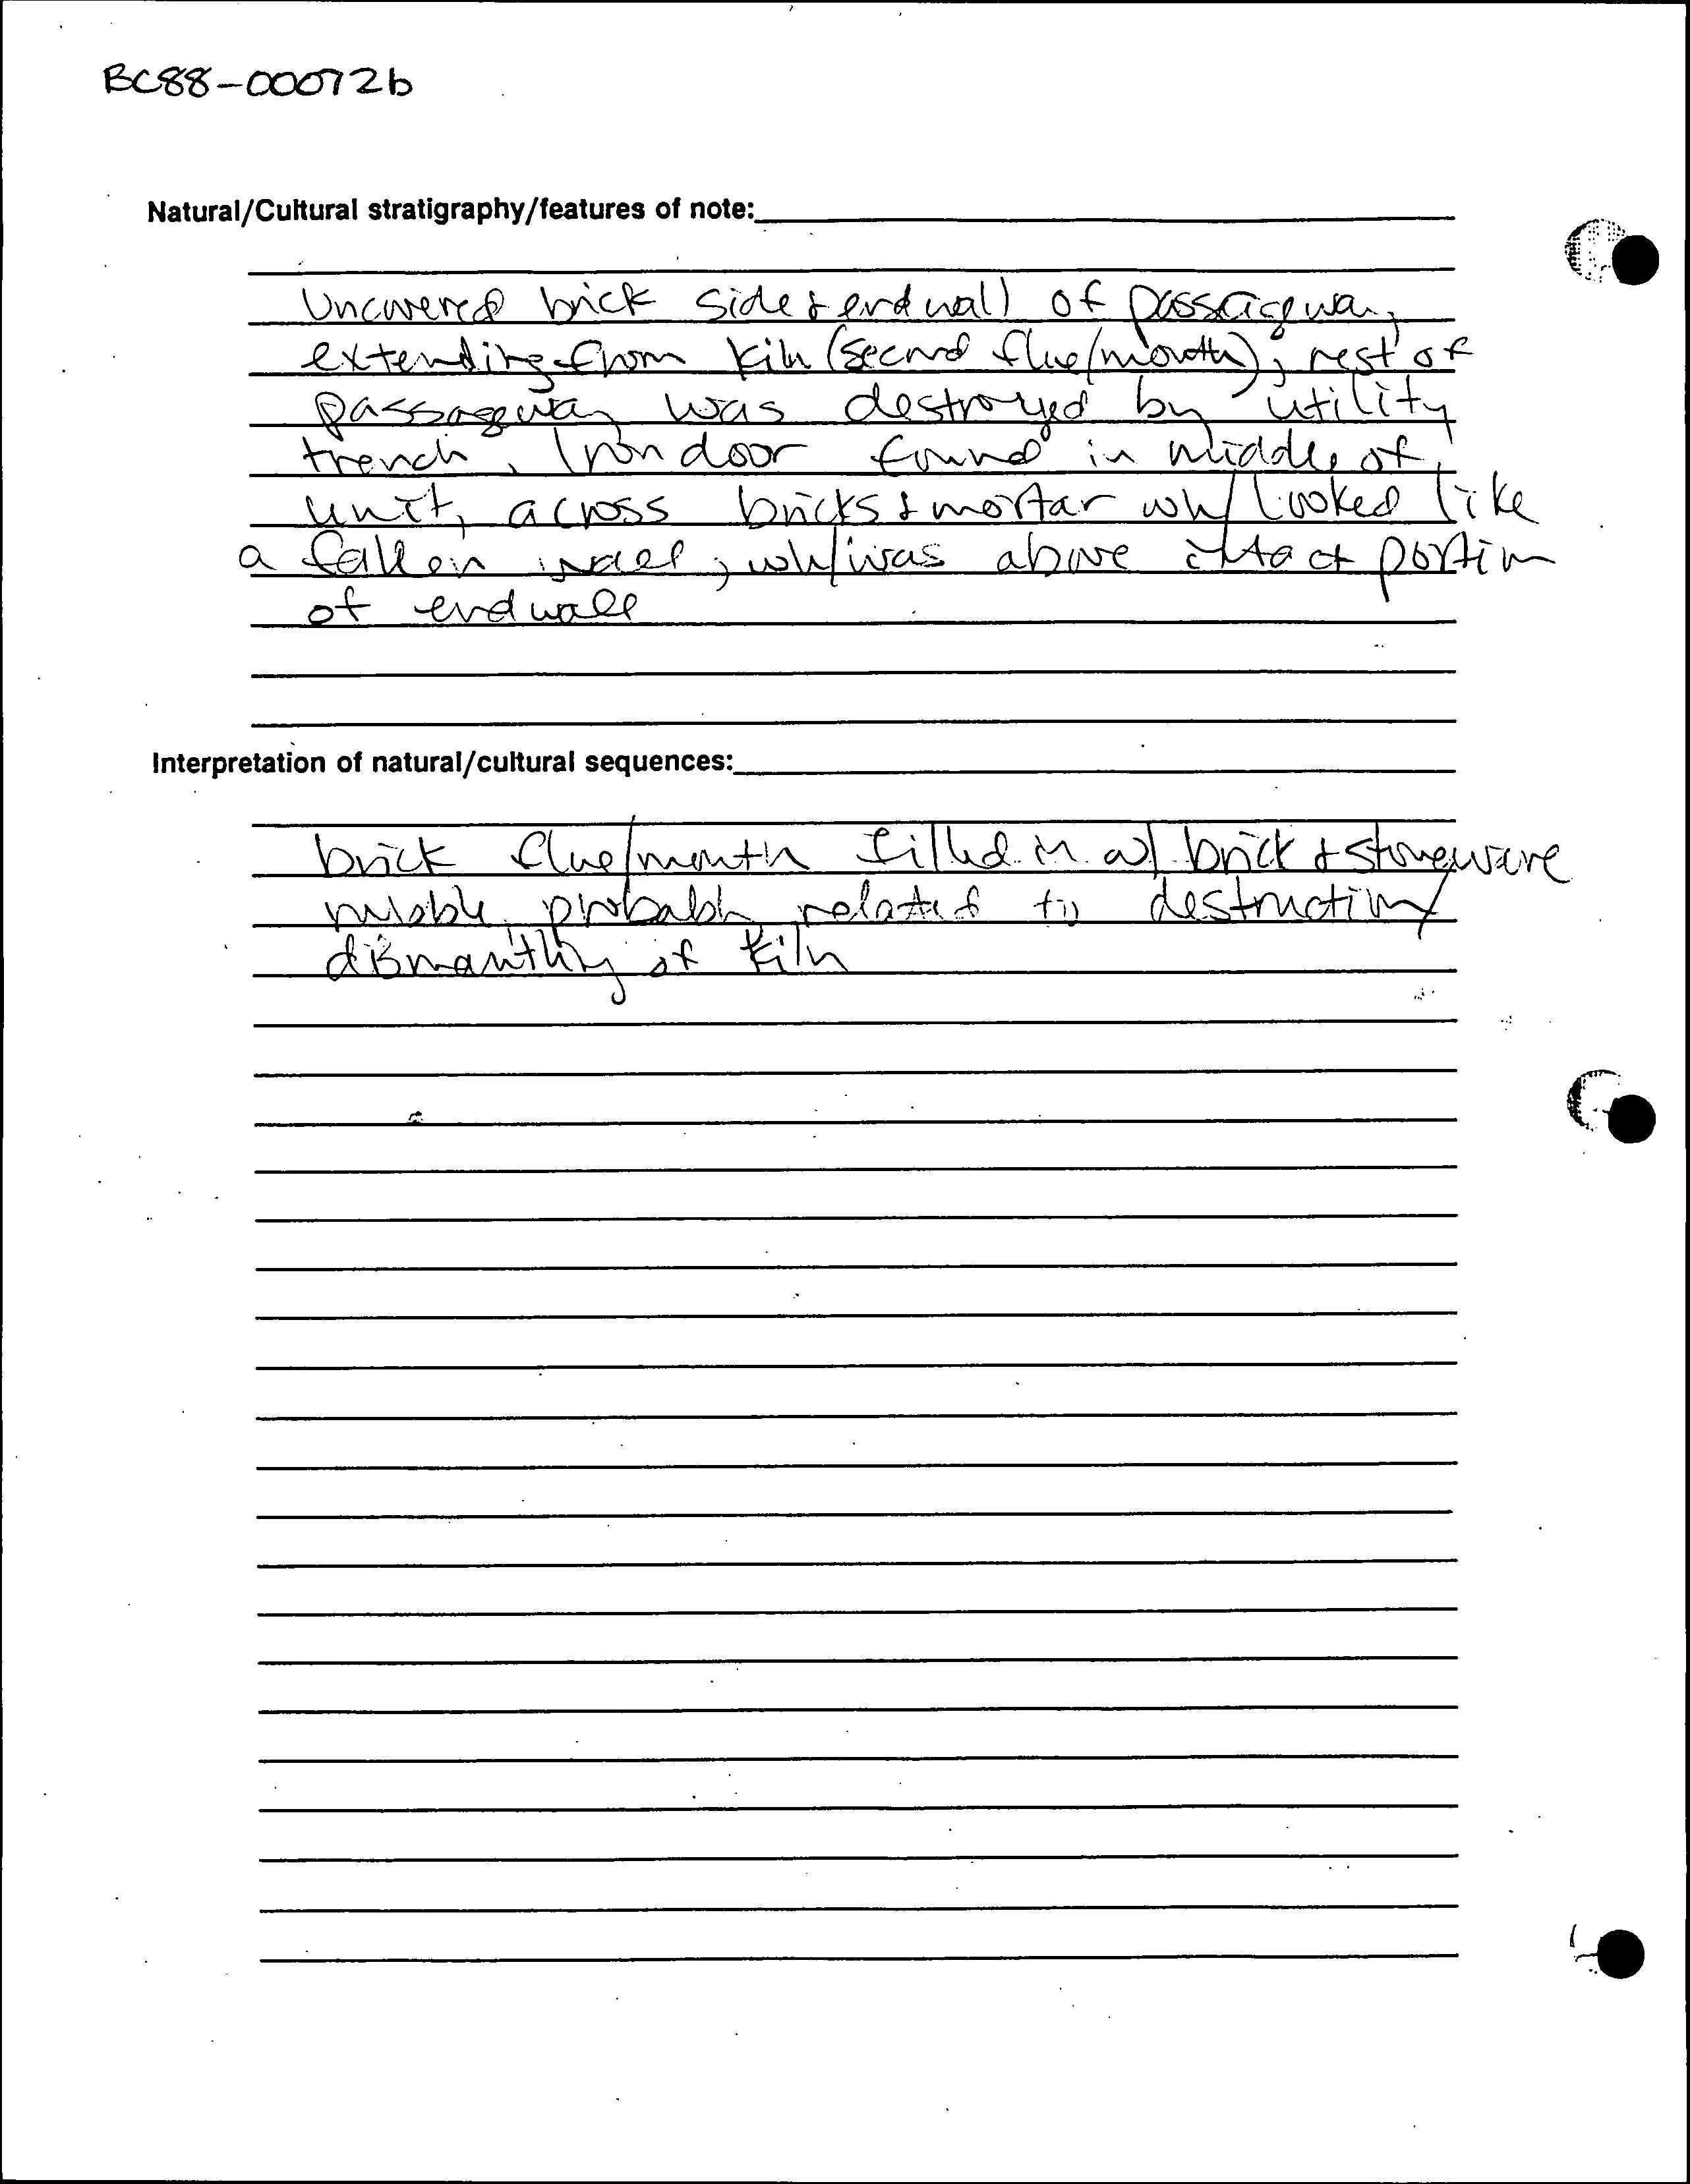 BC88-00072b
Natural/Cultural stratigraphy/features of note:
Uncovered brick side & endwall of passageway
extending from kiln (second flue/mouth); rest of
passageway was destroyed by utility
trench. Iron door found in middle of
unit, across bricks & mortar wh/ looked like
a fallen wall; wh/ was above intact portion
of endwall
Interpretation of natural/cultural sequences:
brick flue/mouth filled in w/ brick & stoneware
rubble, probably related to destruction/
dismantling of kiln